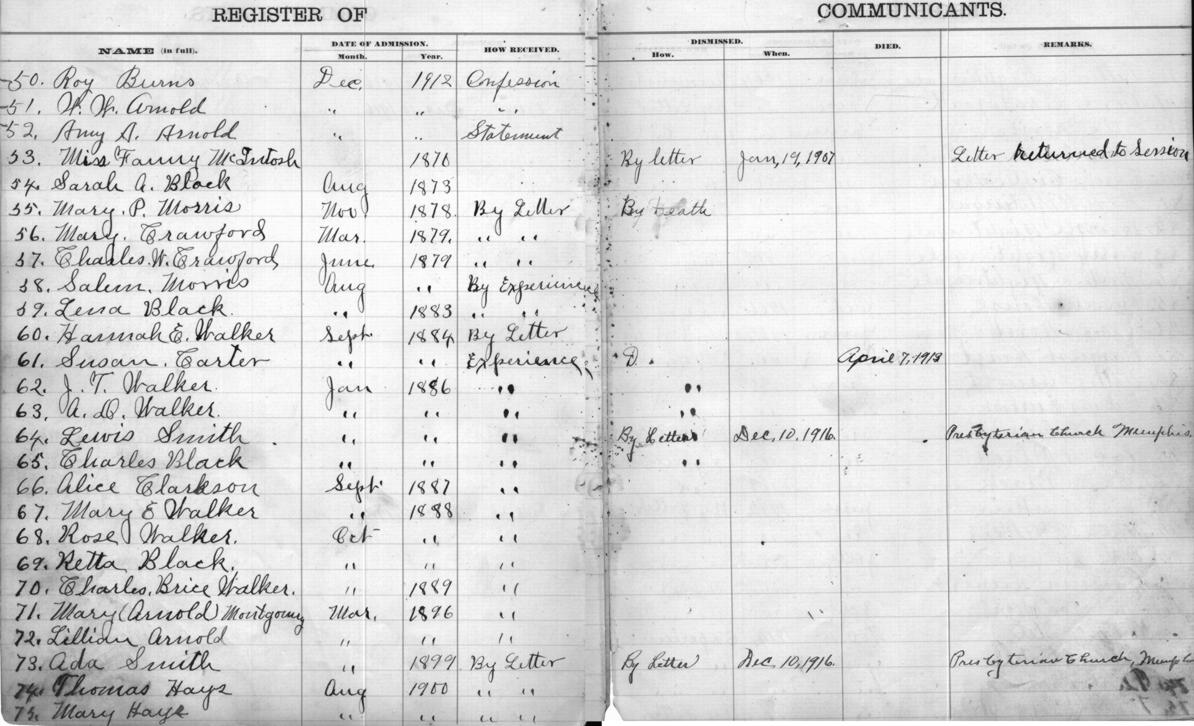 REGISTER OF COMMUNICANTS.
NAME (in full). DATE OF ADMISSION. HOW RECEIVED. DISMISSED. DIED. REMARKS.
Month. Year. How. When.
50. Roy Burns Dec. 1912 Confession
51. W. W. Arnold " " "
52. Amy A. Arnold " " Statement
53. Miss Fanny McIntosh 1870 By letter Jan, 19, 1907 Letter returned to Session
54. Sarah A. Black Aug 1873
55. Mary. P. Morris Nov 1878. By Letter By Death
56. Mary. Crawford Mar. 1879. " "
57. Charles. W. Crawford June 1879 " "
58. Salem. Morris Aug " By Experience
59. Lena Black. " 1883 " "
60. Hannah E. Walker Sept 1884 By Letter
61. Susan. Carter " " Experience D. April 7, 1913
62. J. T. Walker. Jan 1886 " "
63. A. D. Walker. " " " "
64. Lewis Smith. " " " By Letter Dec. 10, 1916. Presbyterian Church Memphis.
65. Charles Black " " " "
66. Alice Clarkson Sept 1887 "
67. Mary E Walker " 1888 "
68. Rose Walker. Oct " "
69. Retta Black. " " "
70. Charles. Brice Walker. " 1889 "
71. Mary (Arnold) Montgomry Mar. 1896 "
72. Lillian Arnold " " "
73. Ada Smith " 1899 By Letter By Letter Dec. 10, 1916. Presbyterian Church,
74. Thomas Hays Aug 1900 " "
75. Mary Hays " " " "